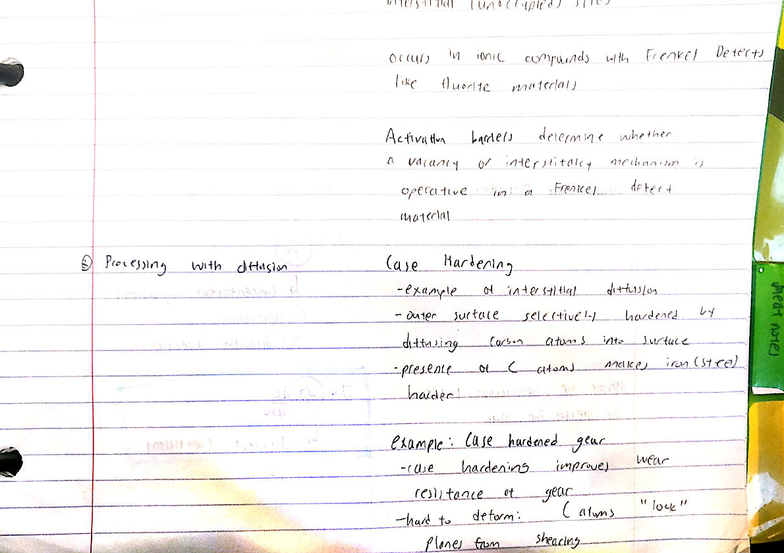 interstitial (unoccupied) sites
occurs in ionic compounds with Frenkel Defects
like fluorite materials
Activation barriers determine whether
a vacancy or interstitalcy mechanism is
operative in a Frenkel defect
material
② Processing with diffusion
Case Hardening
-example of interstitial diffusion
-outer surface selectively hardened by
diffusing carbon atoms into surface
-presence of C atoms makes iron (steel)
harder!
example: Case hardened gear
-case hardening improves wear
resistance of gear
-hard to deform: C atoms "lock"
planes from shearing